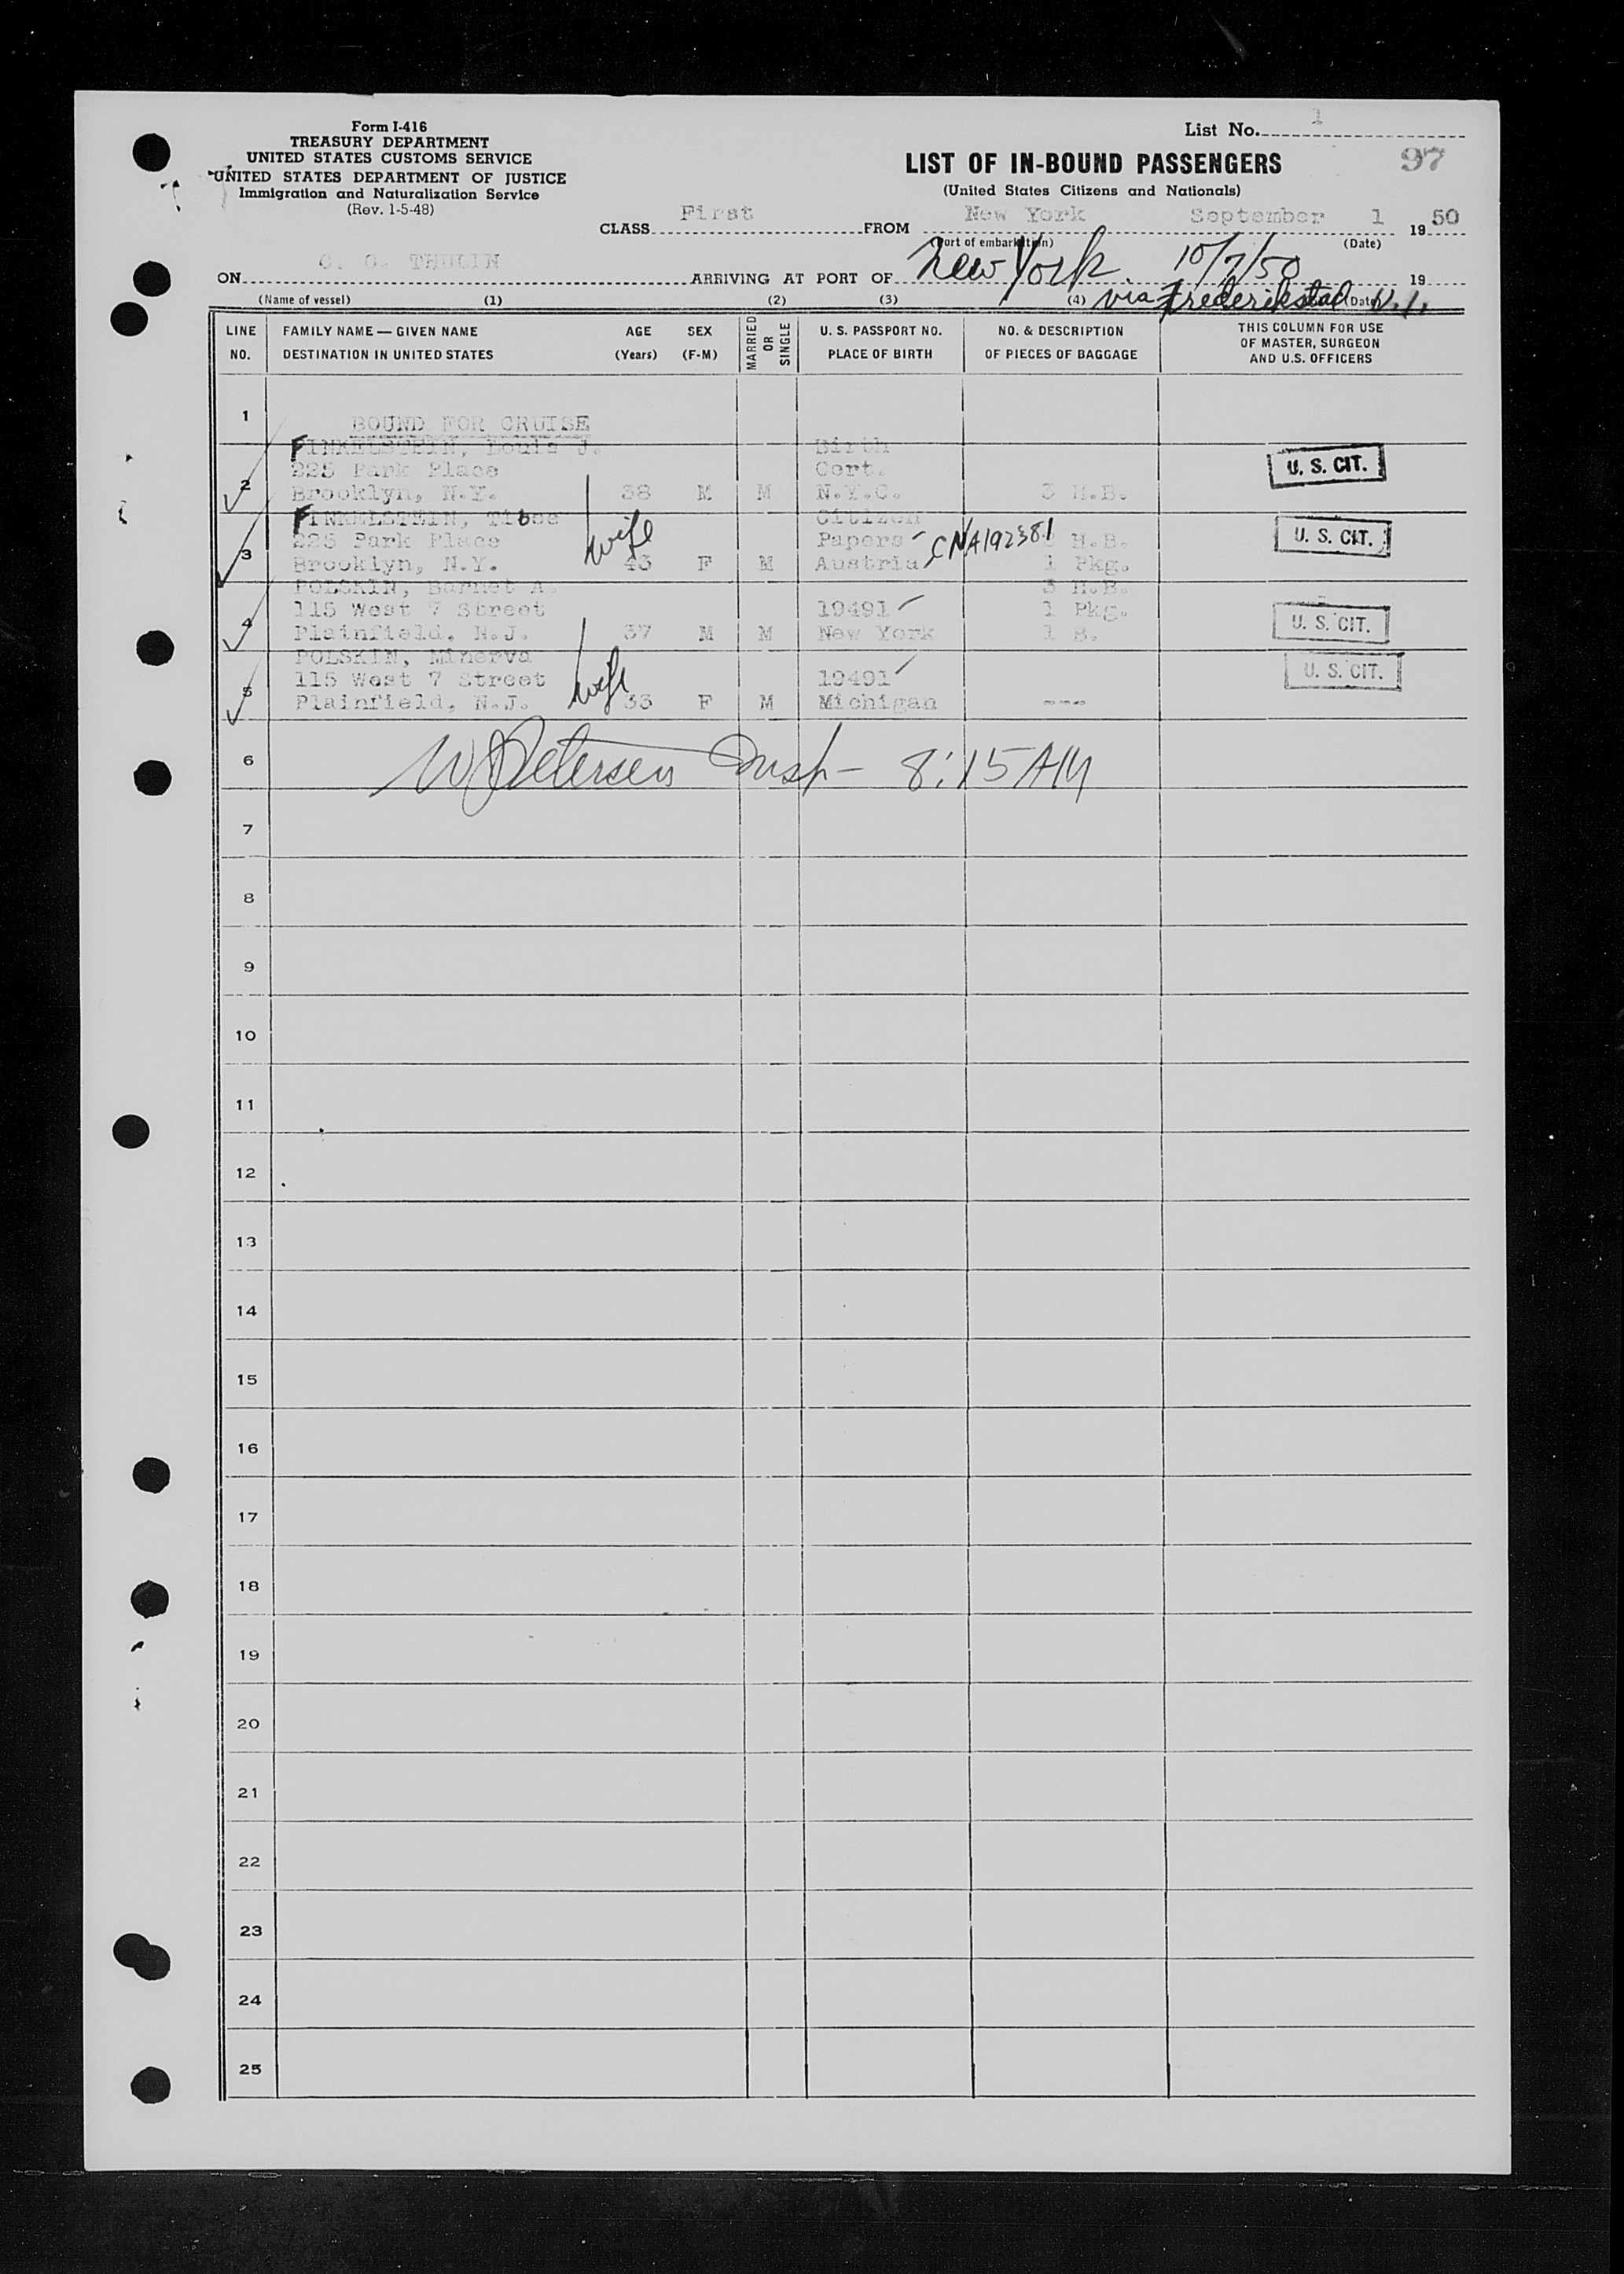 Form I-416
TREASURY DEPARTMENT
UNITED STATES CUSTOMS SERVICE
UNITED STATES DEPARTMENT OF JUSTICE
Immigration and Naturalization Service
(Rev. 1-5-48)
List No. 1
LIST OF IN-BOUND PASSENGERS 97
(United States Citizens and Nationals)
CLASS First FROM New York September 1 1950
(Port of embarkation) (Date)
ON C. G. THULIN ARRIVING AT PORT OF New York 10/7/50 19
via Frederikstad V.I.
(Name of vessel) (1) (2) (3) (4) (Date)
LINE NO. FAMILY NAME — GIVEN NAME DESTINATION IN UNITED STATES AGE (Years) SEX (F-M) MARRIED OR SINGLE U. S. PASSPORT NO. PLACE OF BIRTH NO. & DESCRIPTION OF PIECES OF BAGGAGE THIS COLUMN FOR USE OF MASTER, SURGEON AND U.S. OFFICERS
1 BOUND FOR CRUISE
FINKELSTEIN, Louis J. Birth
225 Park Place Cert. U. S. CIT.
2 Brooklyn, N.Y. 38 M M N.Y.C. 3 H.B.
FINKELSTEIN, Citizen
225 Park Place wife Papers CNA192381 H.B. U. S. CIT.
3 Brooklyn, N.Y. 43 F M Austria 1 Pkg.
POLSKIN, Barnet A. 3 H.B.
115 West 7 Street 19491 1 Pkg.
4 Plainfield, N.J. 37 M M New York 1 B. U. S. CIT.
POLSKIN, Minerva
115 West 7 Street wife 19491 U. S. CIT.
5 Plainfield, N.J. 33 F M Michigan ---
6 W Petersen Insp - 8:15 AM
7
8
9
10
11
12
13
14
15
16
17
18
19
20
21
22
23
24
25